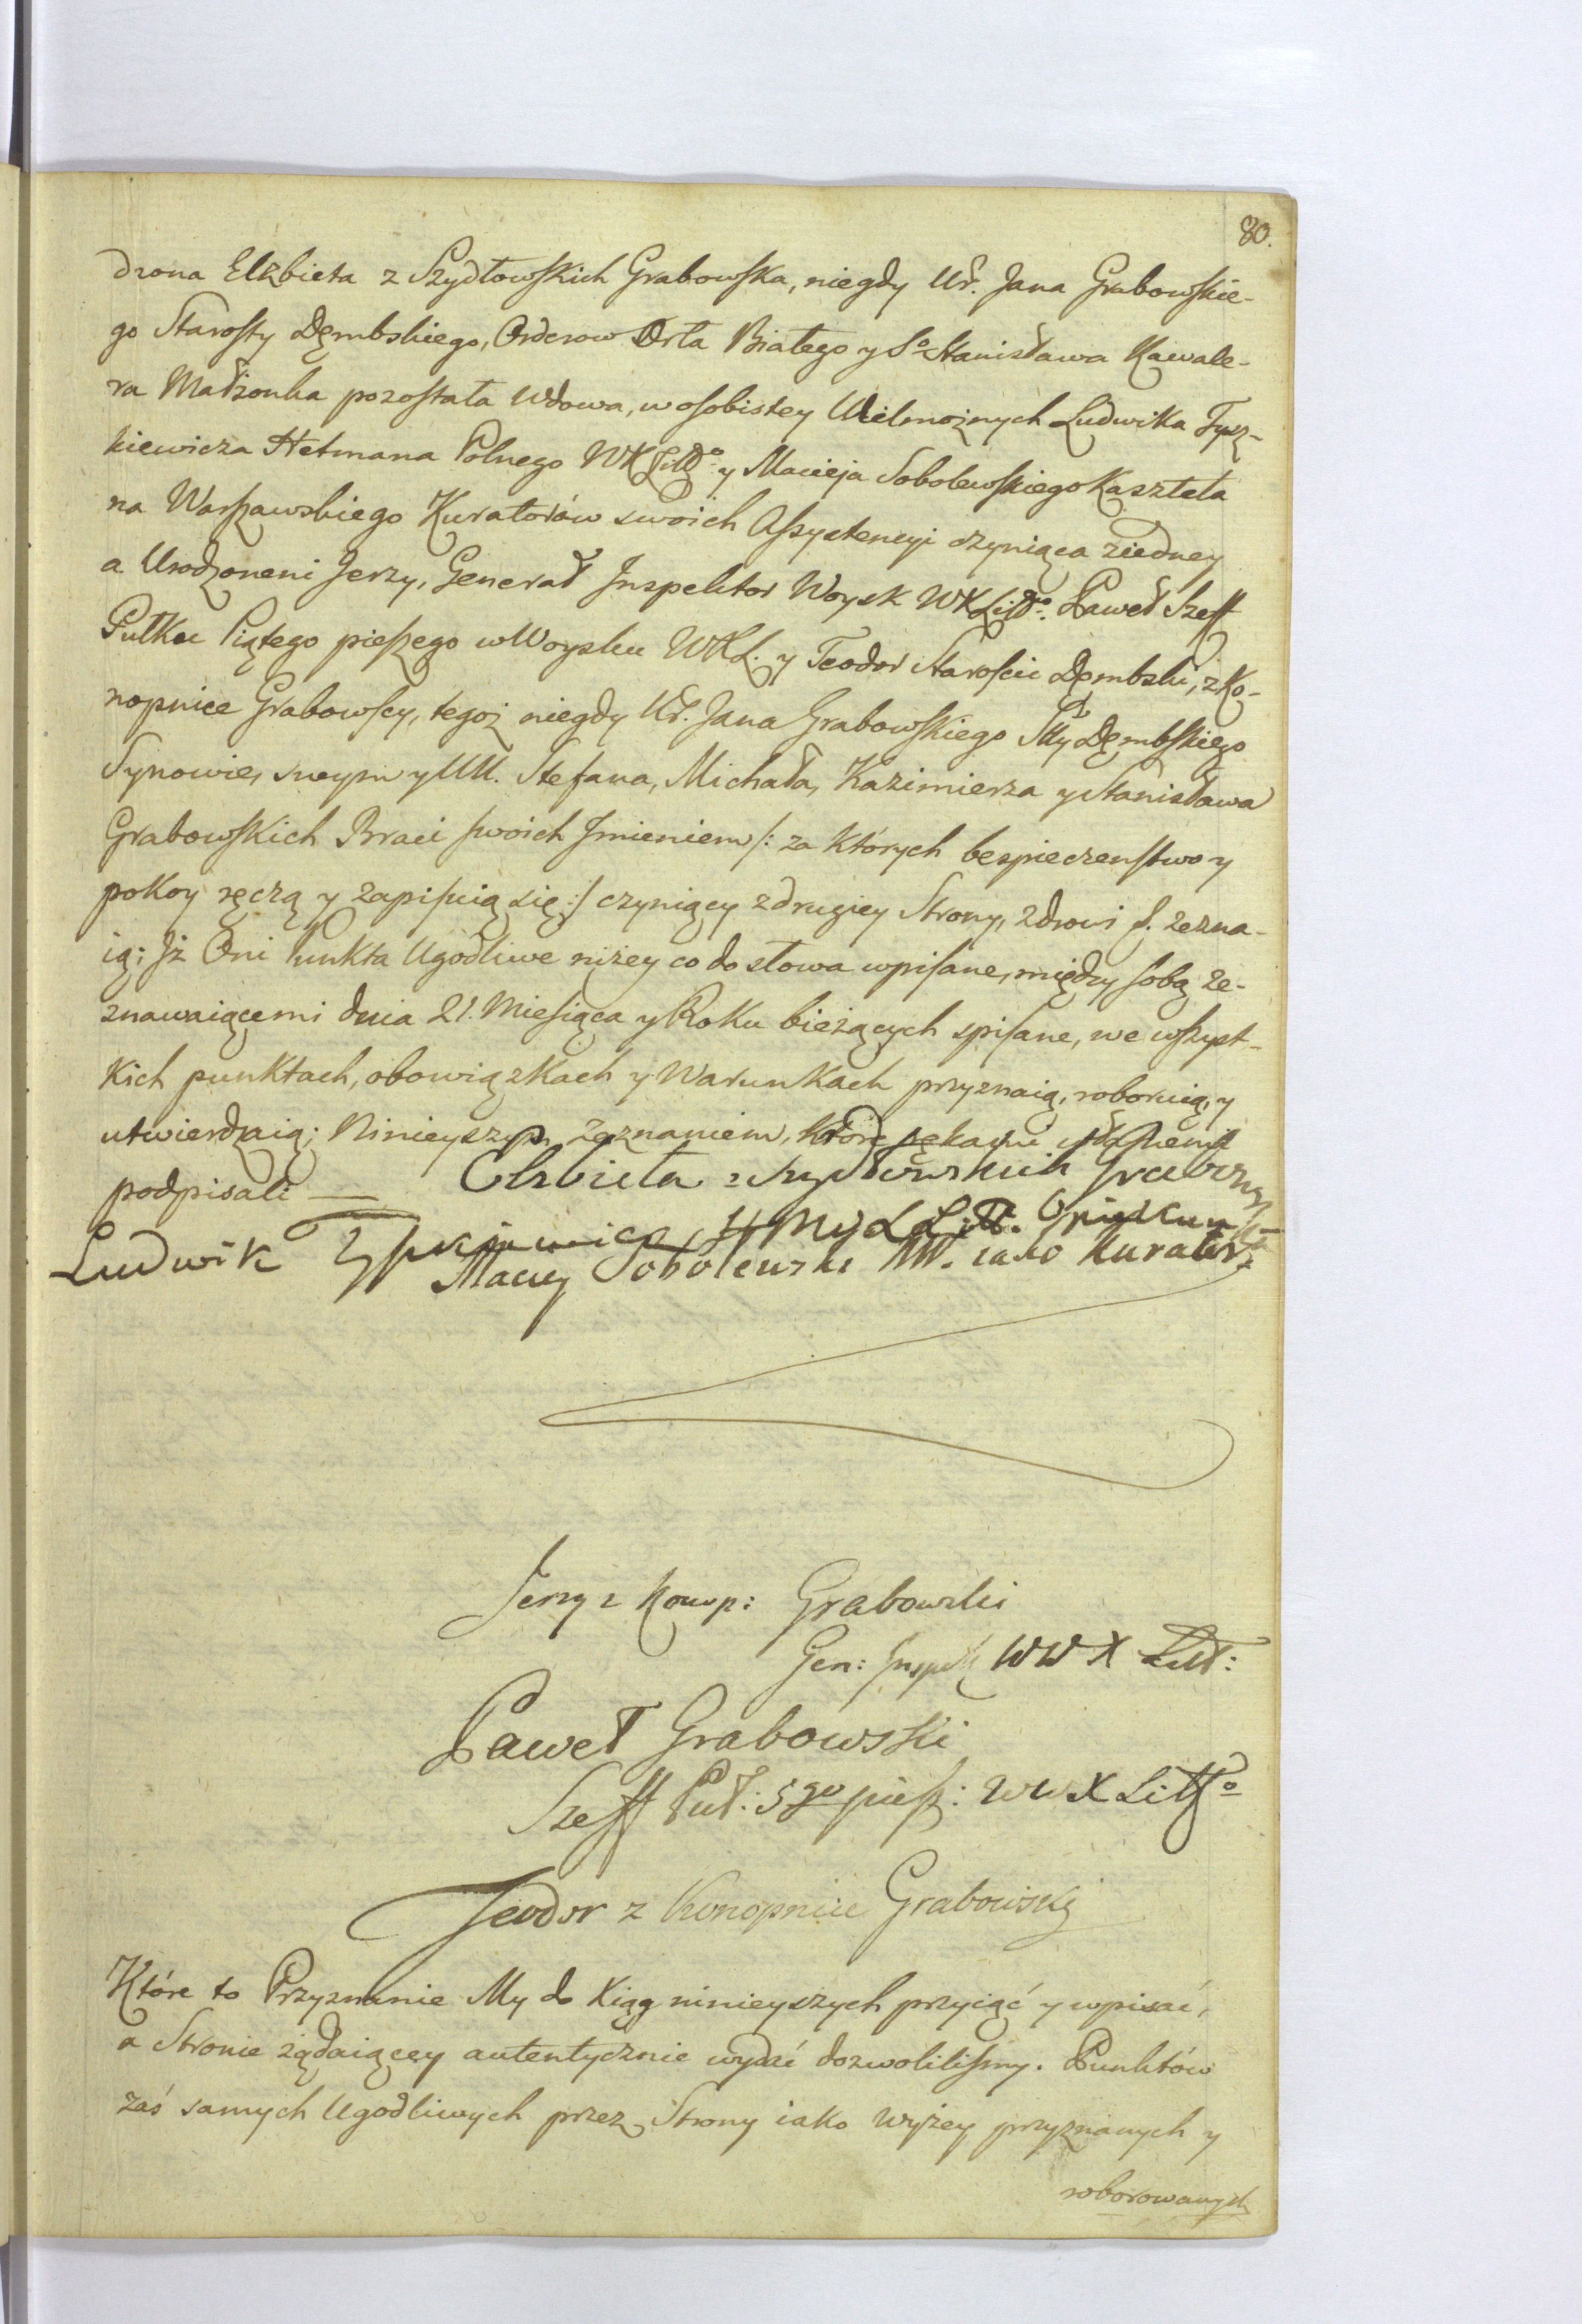 80.
drona Elzbieta z Szydłowskich Grabowska, niegdy Ur. Jana Grabowskie-
go Starosty Dęmbskiego, Orderow Orła Białego y Sº Stanisława Kawale-
ra Małżonka pozostała Wdowa, w osobistey Wielmożnych Ludwika Tysz-
kiewicza Hetmana Polnego WXLittº y Macieja Sobolewskiego Kasztela
na Warszawskiego Kuratorów swoich Assystencyi czyniąca ziedney
a Urodzoneni Jerzy, Generał Inspektor Woysk WXLittº. Paweł Szeff
Pułku Piątego pieszego w Woysku WXL. y Teodor Staroscic Dębmbski, z Ko-
nopnice Grabowscy, tegoż niegdy Ur. Jana Grabowskiego Stty Dęmbskiego
Synowie, swym y UU. Stefana, Michała, Kazimierza y Stanisława
Grabowskich Braci swoich Jmieniem /: za których bespieczenstwo y
pokoy ręczą y zapisuią się :/ czyniący z drugiey Strony, zdrowi f. zezna-
ią; Jż Oni Punkta Ugodliwe niżey co do słowa wpisane, między sobą ze-
znawaiącemi dnia 21. Miesiąca y Roku bieżących spisane, we wszyst-
kich punktach, obowiązkach y Warunkach przyznaią, roboruią, y
utwierdzaią; Ninieyszym Zeznaniem, które rękami własnemi
podpisali —
Elzbieta z Szydłowskich Grabowska
Ludwik Tyszkiewicz H My L Litt. Opiekun
Maciey Sobolewski KW. iako Kurator
Jerzy z Konop: Grabowski
Gen: Inspek WWX Litt:
Paweł Grabowski
Szeff Puł: 5go piesz: WWX Littº
Teodor z Konopnice Grabowski
Które to Przyznanie My do Xiąg ninieyszych przyiąć y wpisać,
a Stronie żądaiącey autentycznie wydać dozwolilismy. Punktów
zaś samych Ugodliwych przez Strony iako wyżey przyznanych y
roborowanych